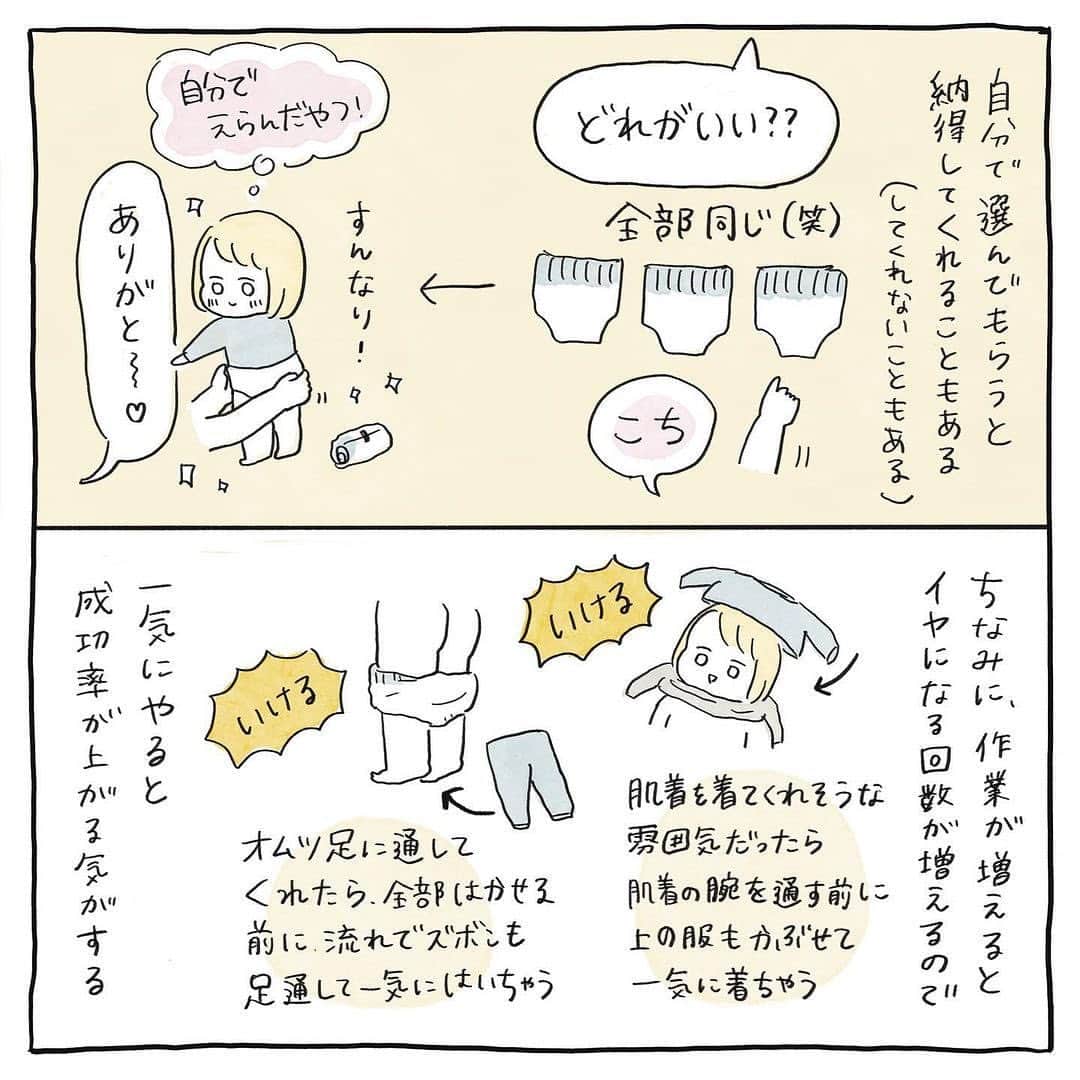 自分で選んでもらうと
納得してくれることもある
(してくれないこともある)
どれがいい??
全部同じ(笑)
こち
すんなり!
自分で
えらんだやつ!
ありがと〜〜♡
ちなみに、作業が増えると
イヤになる回数が増えるので
いける
肌着を着てくれそうな
雰囲気だったら
肌着の腕を通す前に
上の服もかぶせて
一気に着ちゃう
いける
オムツ足に通して
くれたら、全部はかせる
前に、流れでズボンも
足通して一気にはいちゃう
一気にやると
成功率が上がる気がする